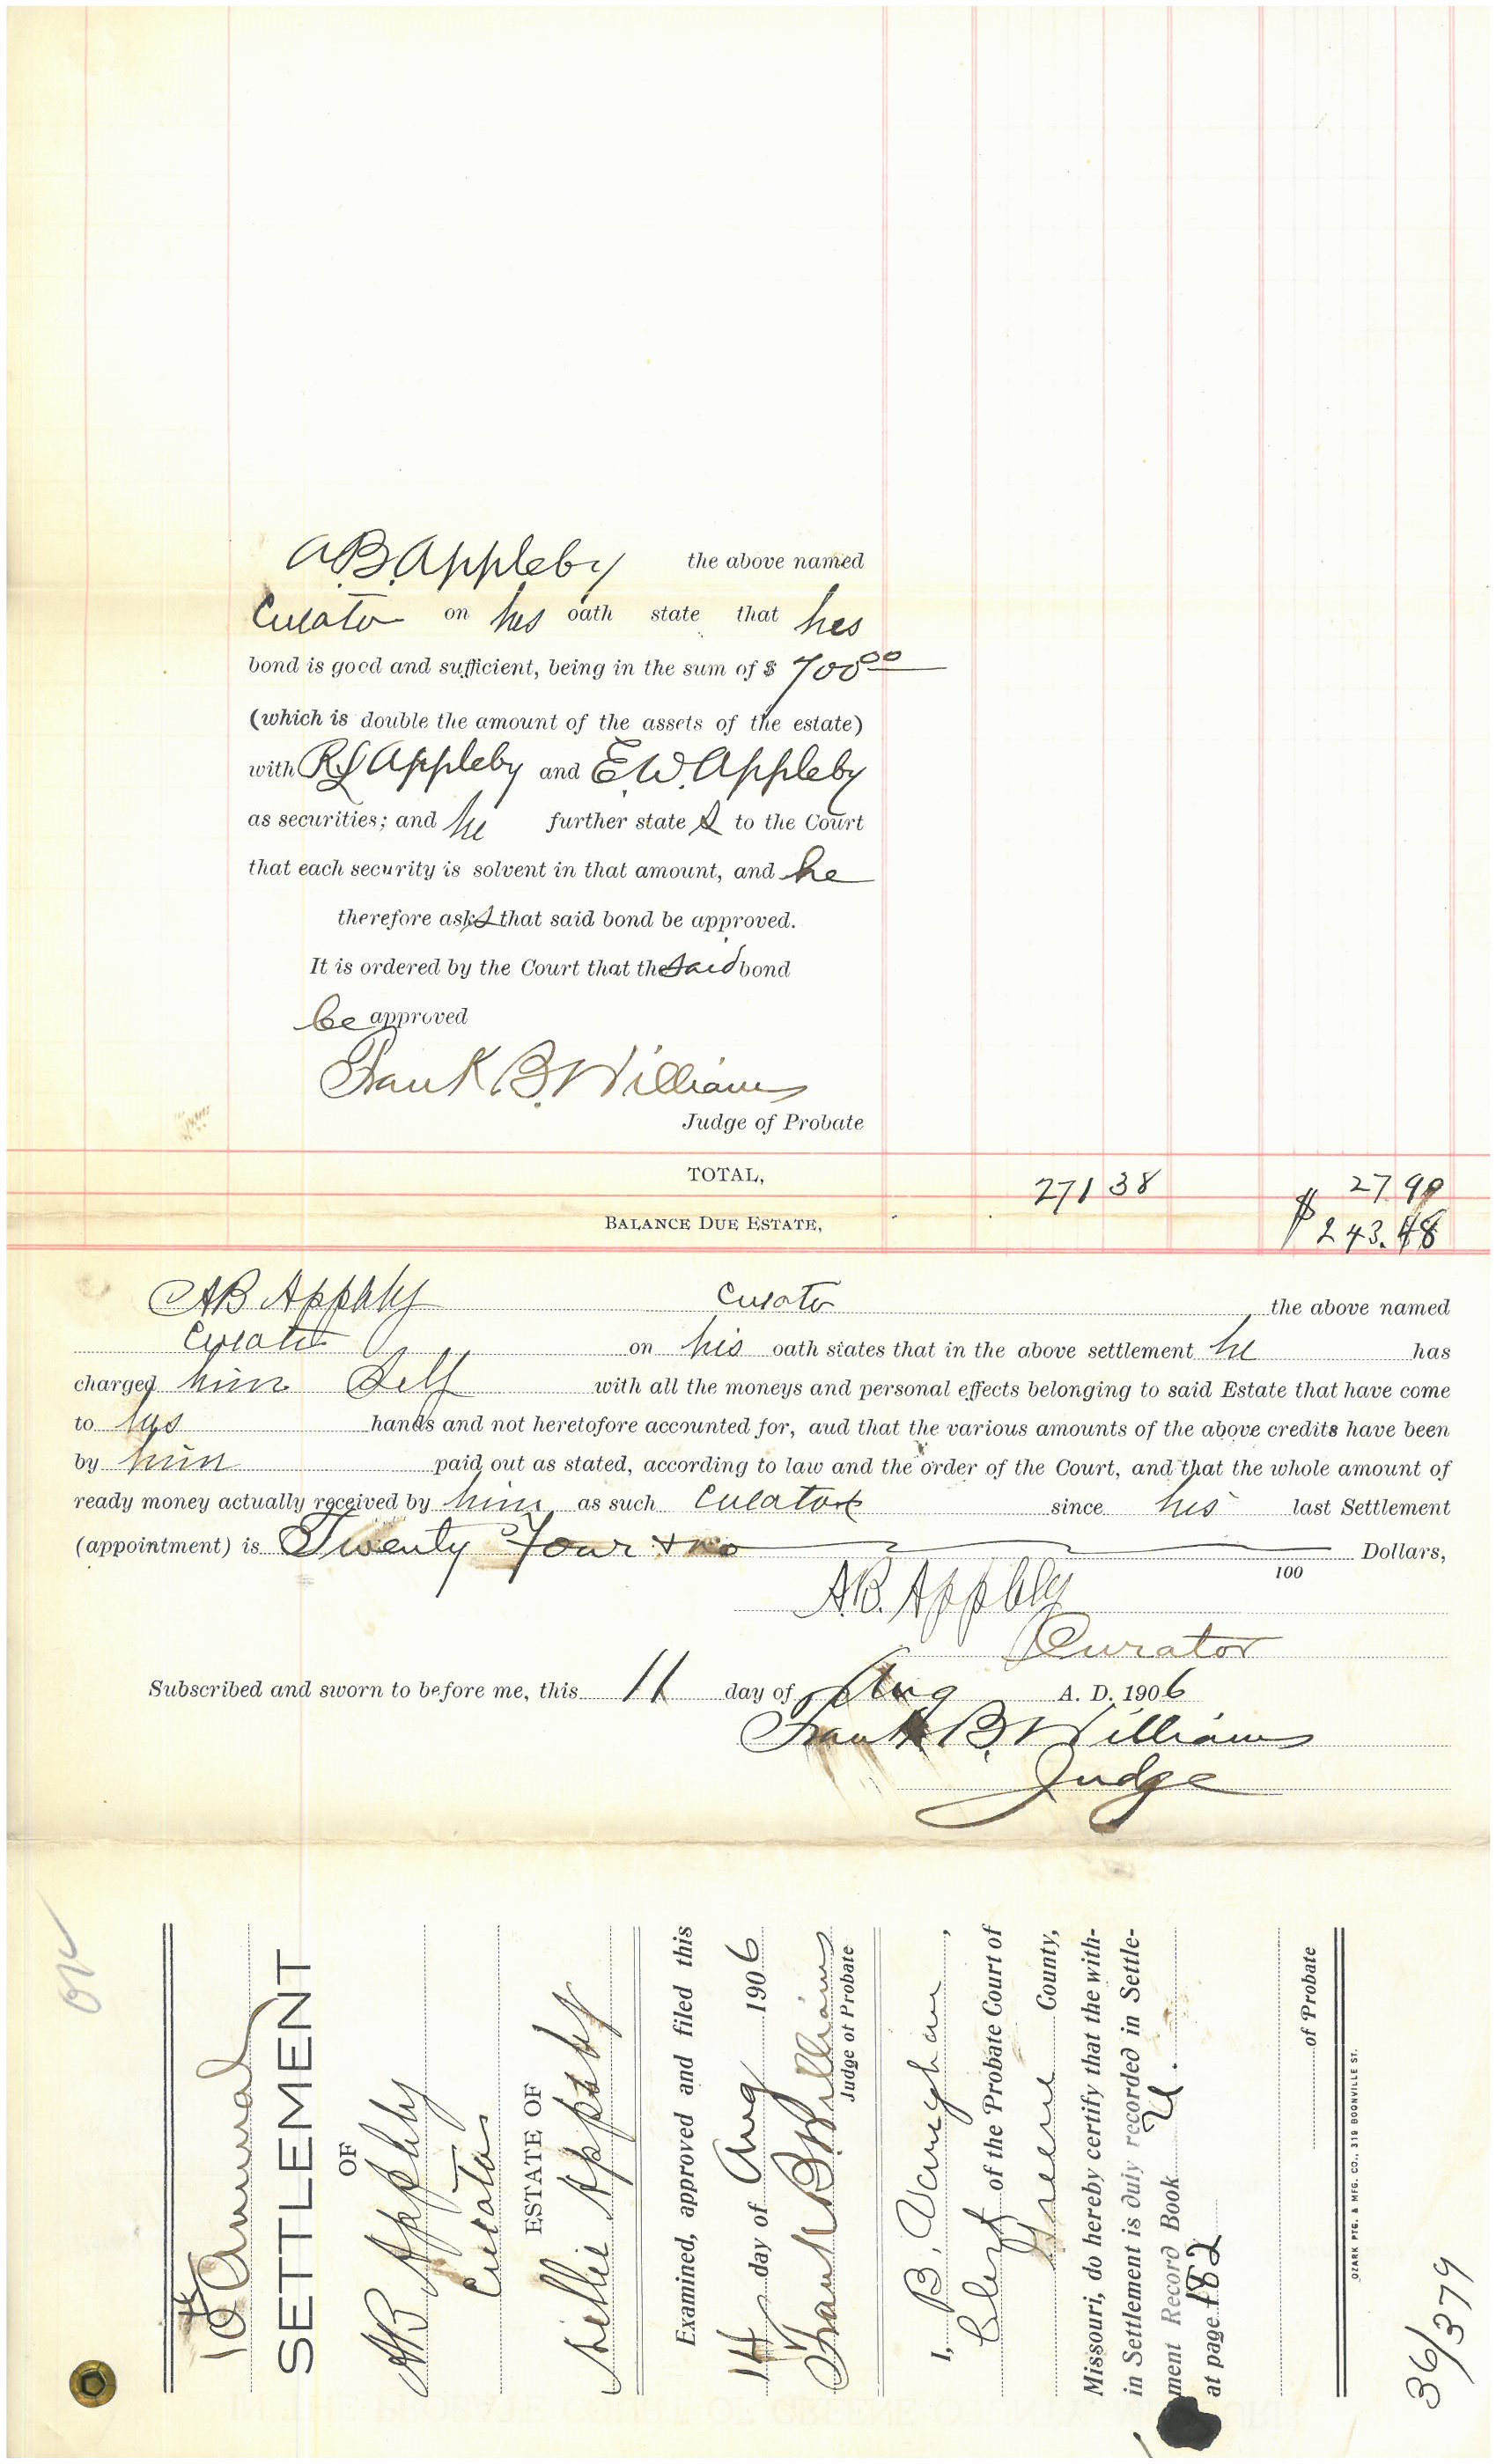 A.B. Appleby the above named
Curator on his oath state that his
bond is good and sufficient, being in the sum of $ 700 00
(which is double the amount of the assets of the estate)
with R L Appleby and E.W. Appleby
as securities; and he further state s to the Court
that each security is solvent in that amount, and he
therefore asks that said bond be approved.
It is ordered by the Court that the said bond
be approved
Frank B. Williams
Judge of Probate
TOTAL, 271 38 27.90
BALANCE DUE ESTATE, $ 243.48
AB Appleby Curator the above named
Curator on his oath states that in the above settlement he has
charged him Self with all the moneys and personal effects belonging to said Estate that have come
to his hands and not heretofore accounted for, aud that the various amounts of the above credits have been
by him paid out as stated, according to law and the order of the Court, and that the whole amount of
ready money actually received by him as such Curator since his last Settlement
(appointment) is Twenty Four + no 100 Dollars,
A.B. Appleby
Curator
Subscribed and sworn to before me, this 11 day of Aug A. D. 1906
Frank B. Williams
Judge
OK
10th Annual
SETTLEMENT
OF
AB Appleby
Curator
ESTATE OF
Nellie Appleby
Examined, approved and filed this
14 day of Aug 1906
Frank B. Williams
Judge of Probate
I, B. Vaughan,
Clerk of the Probate Court of
Greene County,
Missouri, do hereby certify that the with-
in Settlement is duly recorded in Settle-
ment Record Book U.
at page 182
of Probate
OZARK PTG. & MFG. CO., 319 BOONVILLE ST.
36/379